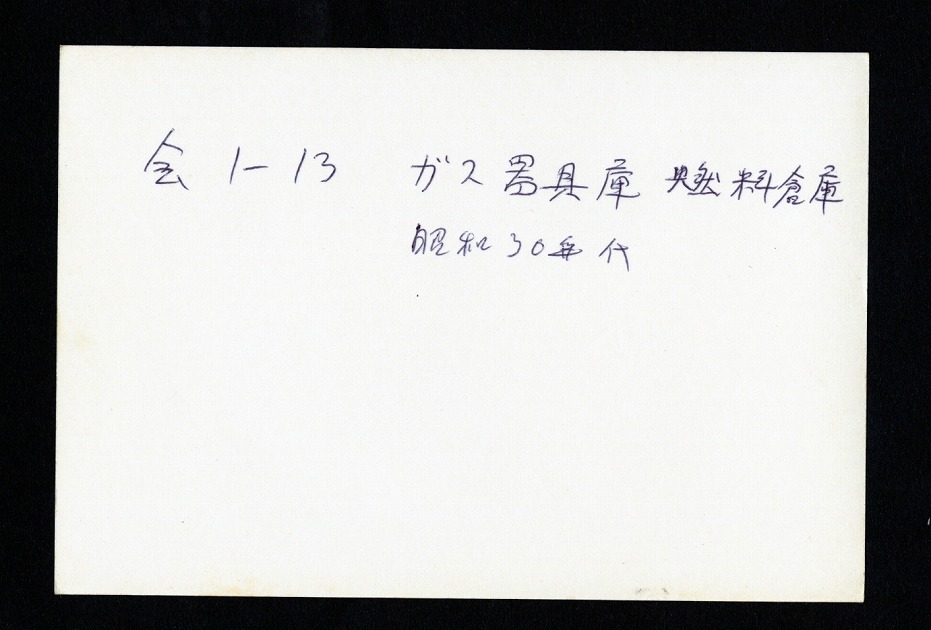 会 1-13 ガス器具庫 燃料倉庫
昭和30年代